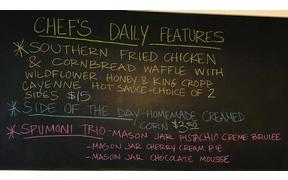 CHEF'S DAILY FEATURES
* SOUTHERN FRIED CHICKEN
& CORNBREAD WAFFLE WITH
WILDFLOWER HONEY & KING CROPP
CAYENNE HOT SAUCE - CHOICE OF 2
SIDES $15
* SIDE OF THE DAY - HOMEMADE CREAMED
CORN
* SPUMONI TRIO - MASON JAR PISTACHIO CREME BRULEE
- MASON JAR CHERRY CREAM PIE
- MASON JAR CHOCOLATE MOUSSE